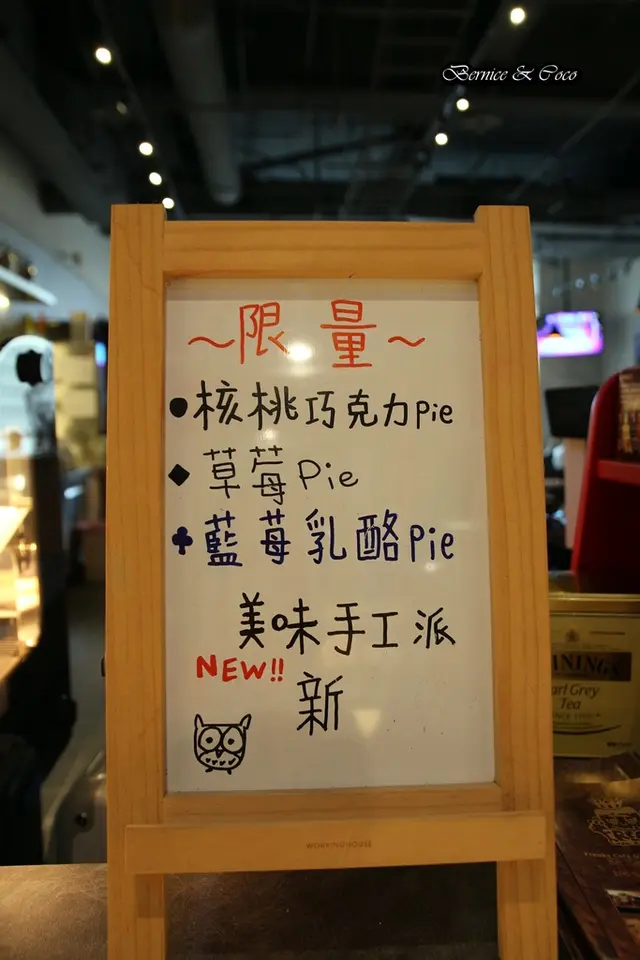 Bernice & Coco
～限量～
●核桃巧克力Pie
◆草莓Pie
♣藍莓乳酪Pie
美味手工派
NEW!!
新
WORKING HOUSE
ININGS
arl Grey
Tea